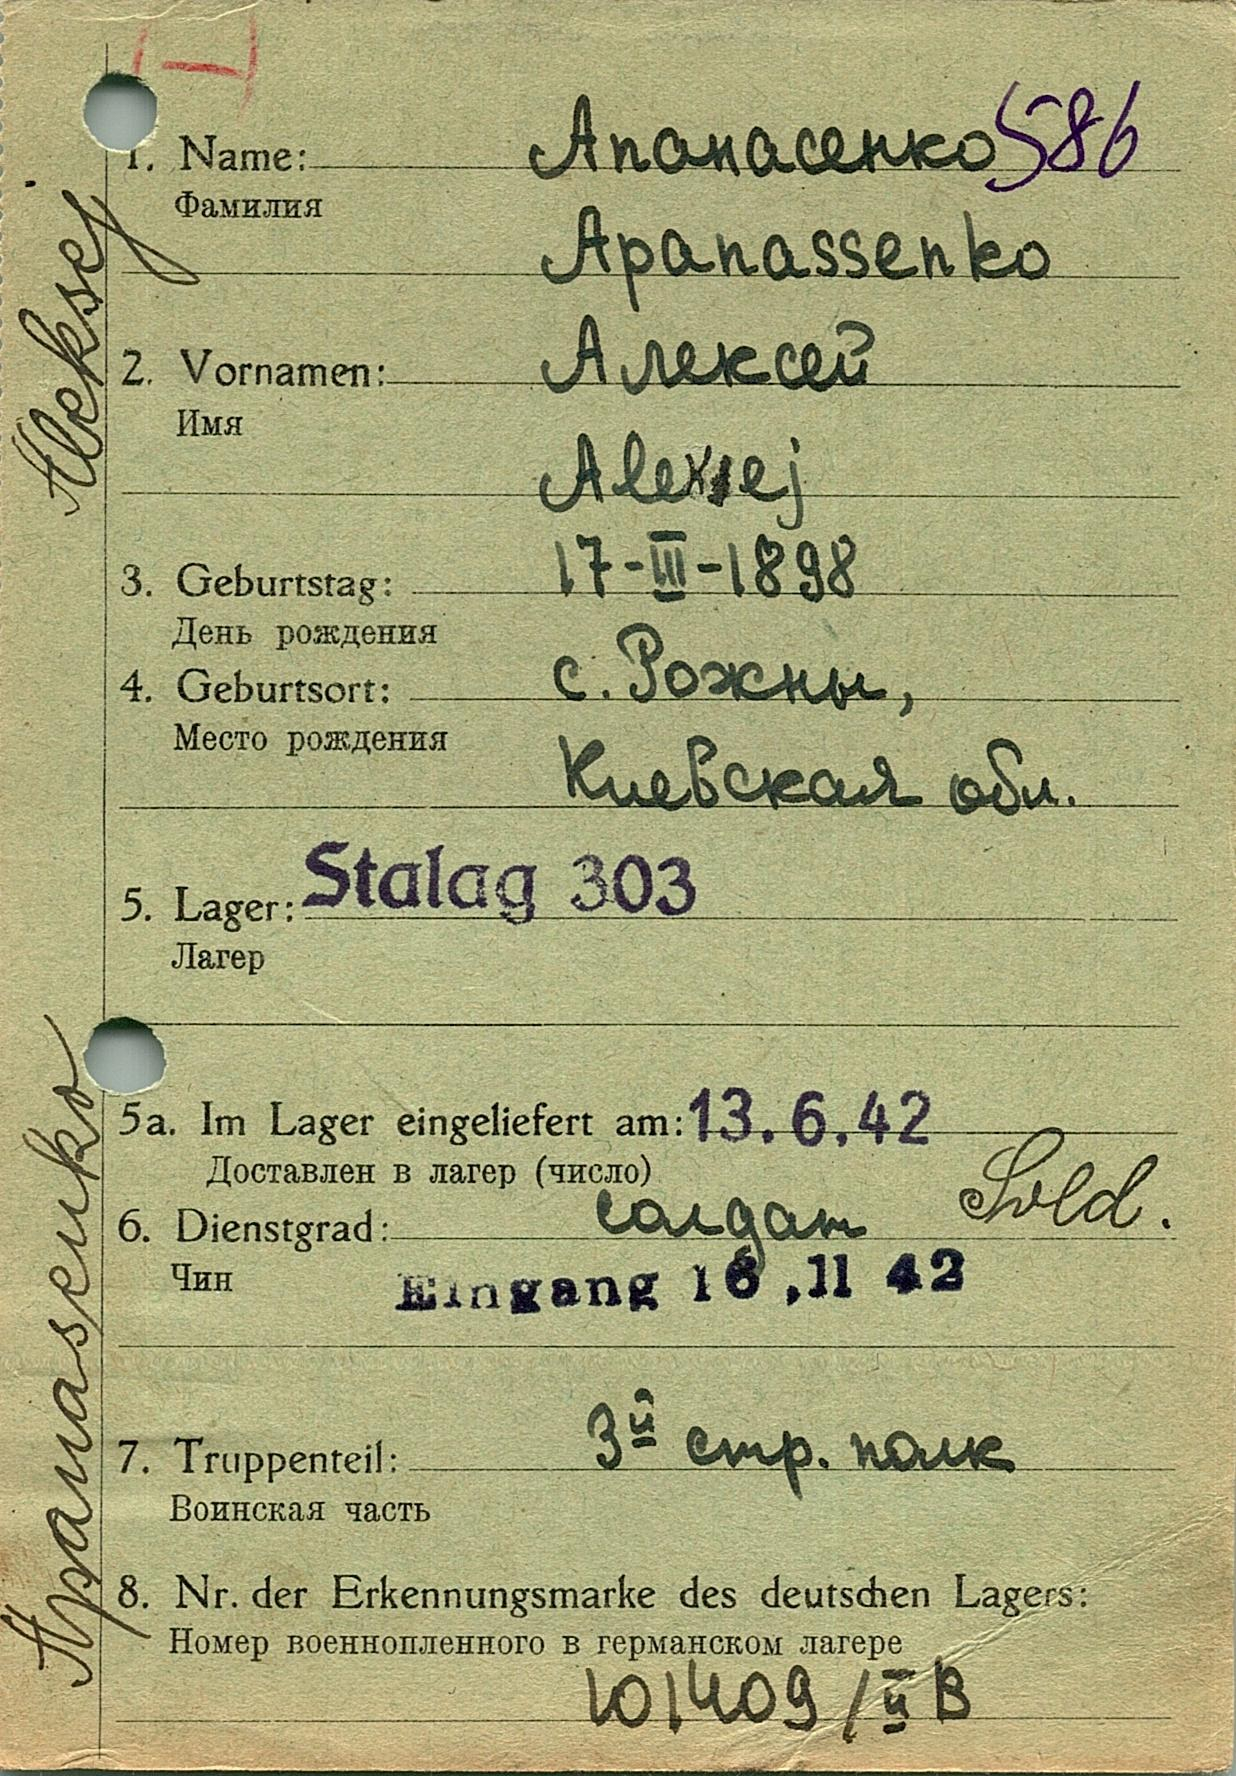 1. Name: Апанасенко 586
Фамилия
Apanassenko
2. Vornamen: Алексей
Имя
Alexej
3. Geburtstag: 17-III-1898
День рождения
4. Geburtsort: с. Рожны,
Место рождения
Киевская обл.
5. Lager: Stalag 303
Лагер
5a. Im Lager eingeliefert am: 13.6.42
Доставлен в лагер (число)
6. Dienstgrad: солдат Sold.
Чин
Eingang 16.11 42
7. Truppenteil: 3й стр. полк
Воинская часть
8. Nr. der Erkennungsmarke des deutschen Lagers:
Номер военнопленного в германском лагере
101409/II B
Apanasenko Aleksej